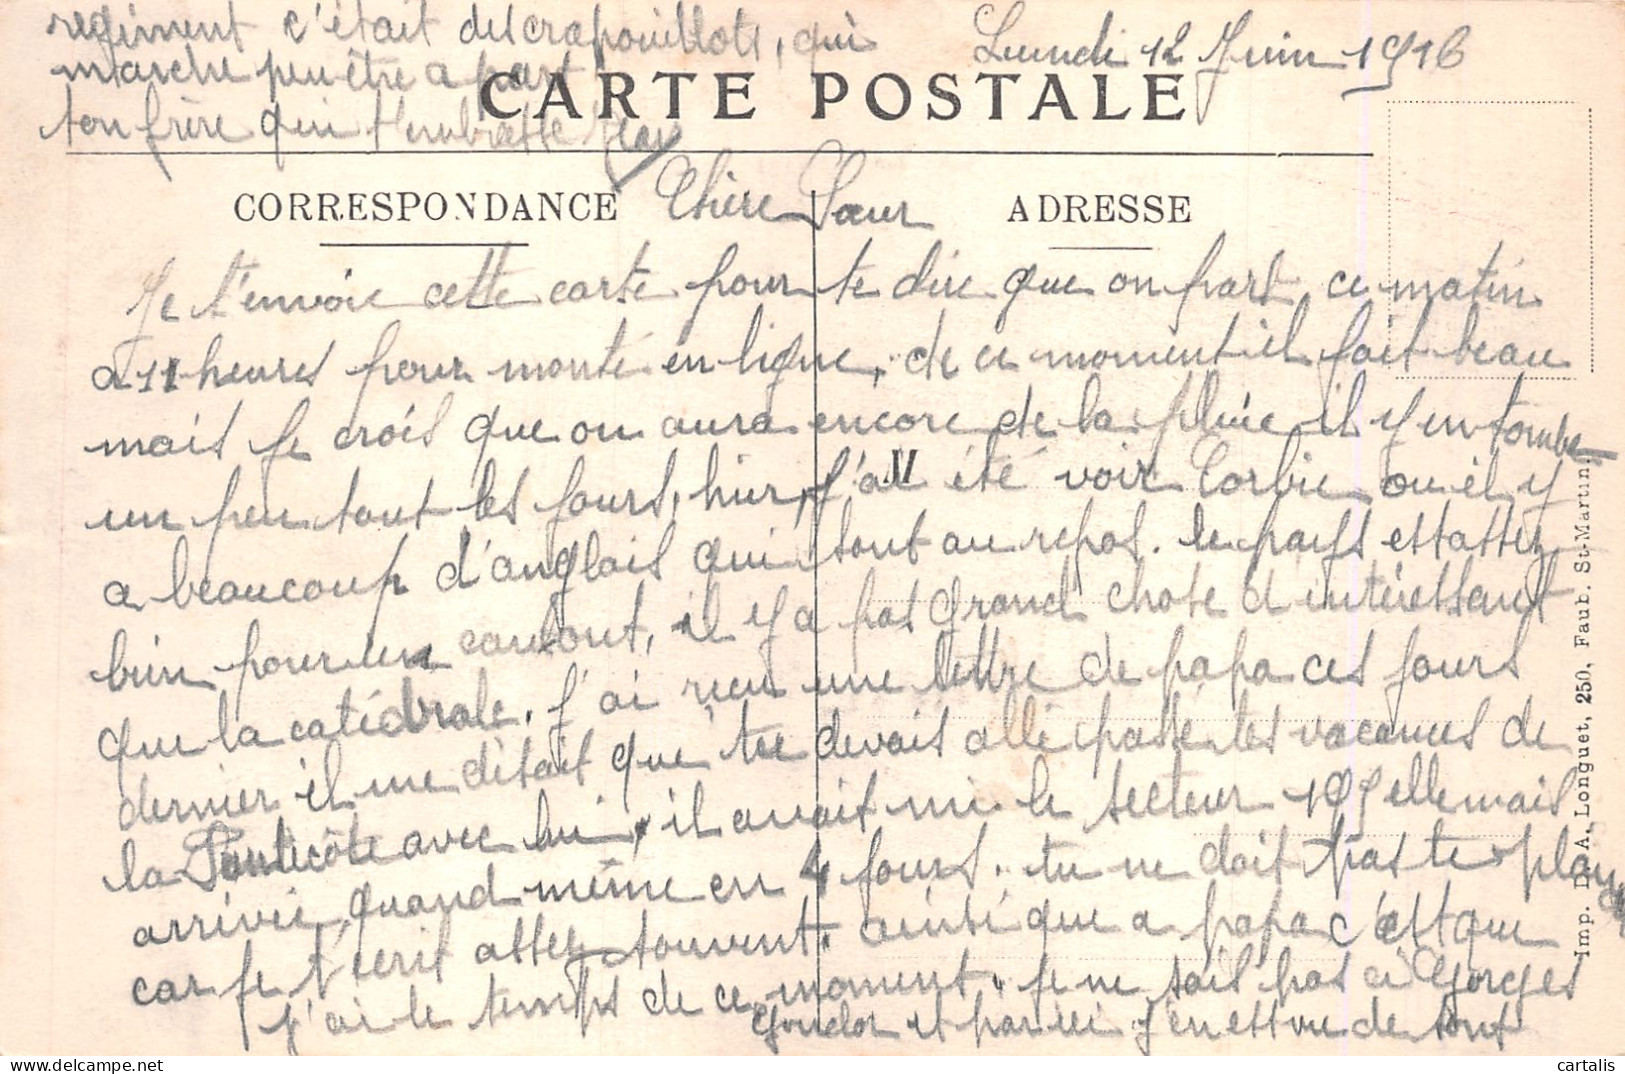 Lundi 12 Juin 1916
CARTE POSTALE
CORRESPONDANCE
ADRESSE
Chère Sœur
Je t'envoie cette carte pour te dire que on part ce matin
a 11 heures pour monté en ligne, de ce moment il fait beau
mais je crois que on aura encore de la pluie il y en tombe
un peu tout les jours, hier, j'ai été voir Corbie ou il y
a beaucoup d'anglais qui sont au repos. le pays est assez
bien pour un , il y a pas grand chose d intéressant
que la catédrale. j'ai reçu une lettre de papa ces jours
dernier il me disait que tu devais allé passé tes vacances de
la Pentecôte avec lui, il avait mi le secteur 105 elle mais
arrivée quand même en 4 jours. tu ne doit pas te plaug
car je t'écrit assez souvent. ainsi que a papa c'est que
j'ai le temps de ce moment. je ne sais pas ci Gorges
Goudot et par ici j'en est vu de sont
regiment c'était des crapouillots, qui
marche peu être a part
ton frère qui t'embrasse
Imp. D. A. Longuet, 250, Faub. St-Martin.
cartalis - www.delcampe.net